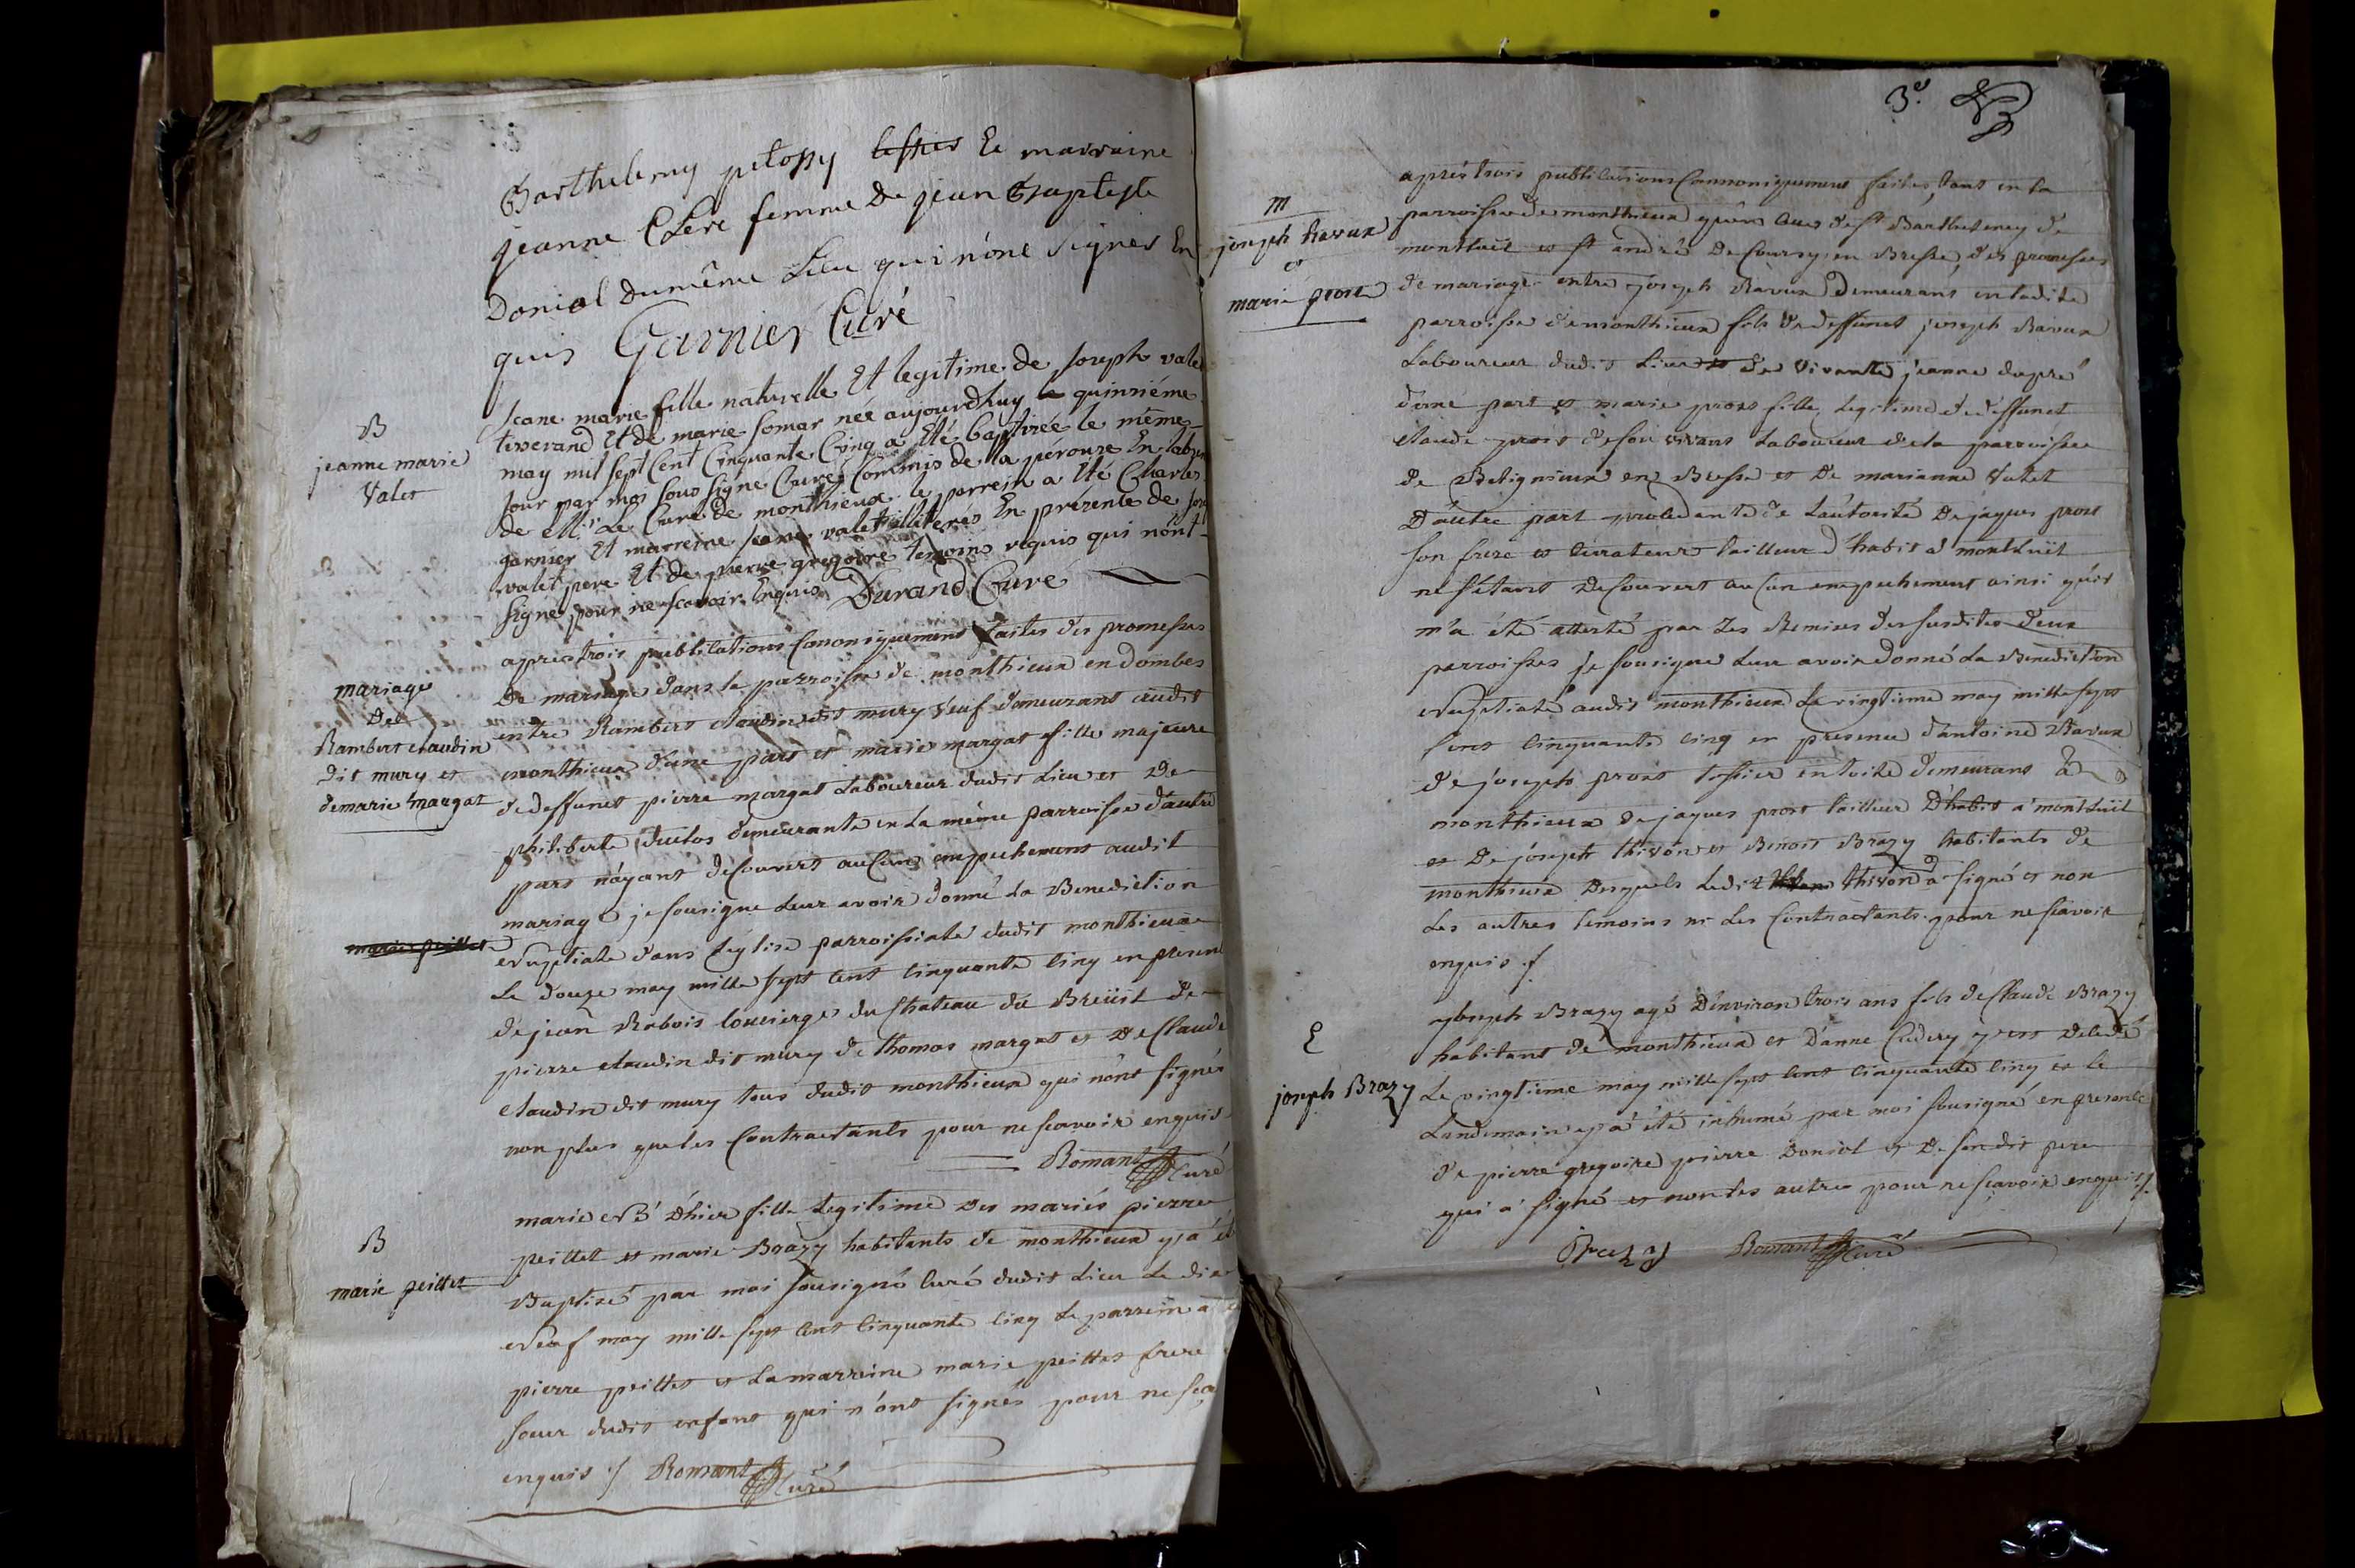 Barthelemy petossy et marraine
jeanne Clere femme de jean Baptiste
Donial du même Lieu qui n'ont signés En
quis Garnier Curé
B
jeanne marie
Valet
Jeane marie fille naturelle Et legitime de Joseph valet
tisserand Et de marie somar née aujourdhuy le quinziéme
may mil sept Cent Cinquante Cinq a Eté baptizée le méme
Jour par moi sous signe Curé Commis de la pérouze En labsen
de Mr. Le Curé de monthieux le parrein a Eté Charles
garnier Et marreine jeane valet illiteres En présence de Jose
valet pere Et de pierre gregoire temoins requis qui nont
signé pour ne scavoir Enquis Durand Curé
mariage
De
Rambert claudin
dit mury et
de marie margat
apres trois publications Canoniquement faites des promesses
De mariage dans la parroisse de monthieux en dombes
entre Rambert claudin dit mury veuf demeurant audit
monthieux d'une part et marie margat fille majeure
de deffunct pierre margat Laboureur dudit Lieu et De
philiberte duclos demeurante en La même parroisse d'autre
part n'ayant descouvert aucun empechement audit
mariage je sousigne Leur avoir donné La Benediction
Nuptiale dans L'église parroissiale dudit monthieux
Le douze may mille sept cent cinquante cinq en presence
de jean Rabois concierge du Chateau du Breüil de
pierre claudin dit mury de thomas margat et De Claude
claudin dit mury tous dudit monthieux qui n'ont signés
non plus que les Contractants pour ne scavoir enquis
Romant Curé
marie peillet
B
marie peillet
marie Né D'hier fille Legitime Des mariés pierre
peillet et marie Brazy habitants de monthieux y a été
Baptisé par moi sousigné Curé dudit Lieu Le dix
Neuf may mille sept cent cinquante cinq Le parrein a
pierre peillet et La marreine marie peillet frere
soeur dudit enfant qui n'ont signés pour ne sca
enquis ./ Romant Curé
3e.
m
joseph Ravux
et
marie prost
aprés trois publications Cannoniquement faites, tant en La
parroisse de monthieux qu'en celles de st Barthelemy de
montluel et st andré De Courcy en Bresse, des promesses
de mariage entre joseph Ravux Demeurant en ladite
parroisse de monthieux fils de deffunct joseph Ravux
Laboureur dudit Lieu et de vivante jeanne dupré
d'une part et marie prost fille Legitime de deffunct
claude prost de son vivant Laboureur de la parroisse
de Beligneux en Bresse et De marianne Valet
D'autre part procedante de L'autorité De jaques prost
son frere et curateur tailleur d'habit a montluël
ne s'étant Descouvert aucun empechement ainsi qu'il
m'a été attesté par Les Remises des susdites deux
parroisses je sousigne Leur avoir donné La Benediction
Nuptiale audit monthieux Le vingtieme may mille sept
cent cinquante cinq en presence d'antoine Ravux
de joseph prost tissier en toile demeurant à
monthieux De jaques prost tailleur D'habit a montluël
et De joseph thivon et Benoit Brazy habitants de
monthieux Desquels Ledit thivon a signé et non
Les autres temoins ni Les Contractants pour ne scavoir
enquis ./
E
joseph Brazy
joseph Brazy agé D'environ trois ans fils de Claude Brazy
habitant de monthieux et D'anne Cudery y est Decedé
Le vingtieme may mille sept cent cinquante cinq et le
Lendemain y a été inhumé par moi sousigné en presence
de pierre gregoire pierre Doniol et De son dit pere
qui a signé et non les autres pour ne scavoir enquis ./
Brazy Romant Curé